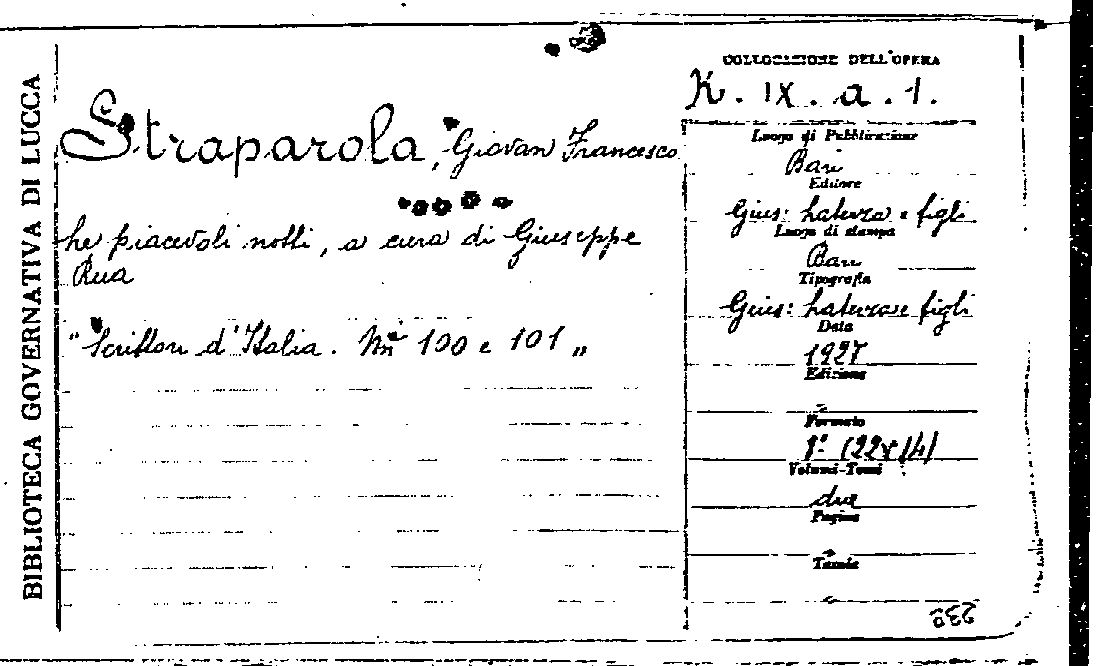 BIBLIOTECA GOVERNATIVA DI LUCCA
Straparola, Giovan Francesco
Le piacevoli notti, a cura di Giuseppe
Rua
"Scrittori d'Italia. Nn 100 e 101"
COLLOCAZIONE DELL'OPERA
K. IX. a. 1.
Luogo di Pubblicazione
Bari
Editore
Gius: Laterza e figli
Luogo di stampa
Bari
Tipografia
Gius: Laterza e figli
Data
1927
Edizione
Formato
8° (22x14)
Volumi-Tomi
due
Pagine
Tavole
232